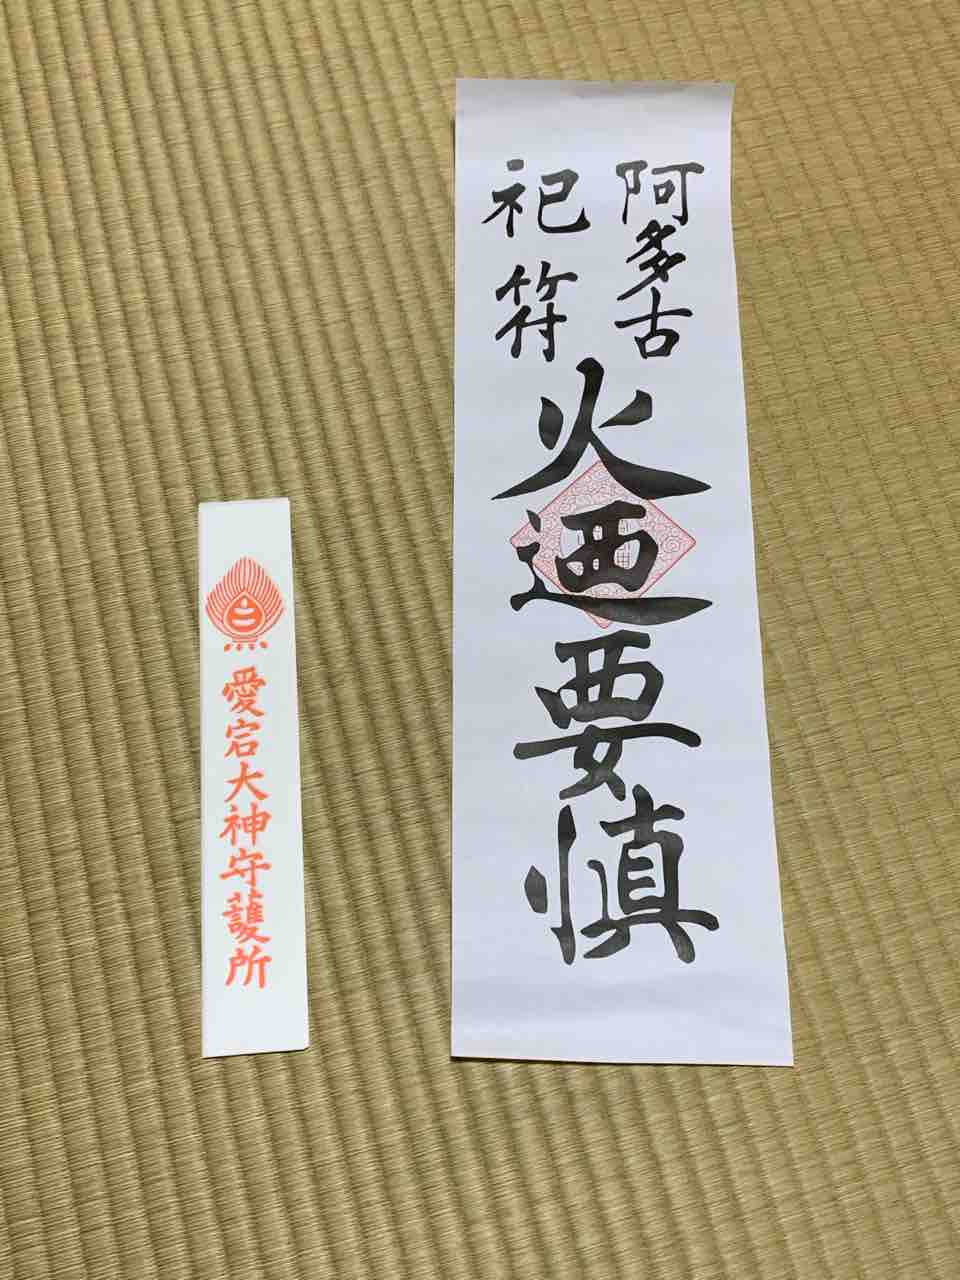 阿多古
祀符
火迺要慎
愛宕大神守護所